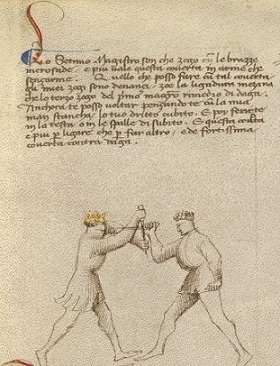 Lo Setimo Magistro son che zogo cu le brazze
incrosade. E piu uale questa couerta in arme che
senzarme. Quello che posso fare cu tal couerta
gli miei zogi sono denanci. zoe la ligadura mezana
che lo terzo zogo del primo magro remedio di daga.
Anchora te posso uoltar penzando te cu la mia
man stancha lo tuo dritto cubito. E poy ferirte
in la testa o in le spale di subito. E questa couerta
e piu per ligare che per far altro, e de fortissima
couerta contra daga.